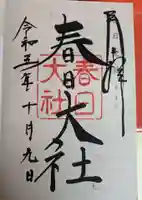 奉拝
春日大社
春日
大社
令和五年十月九日